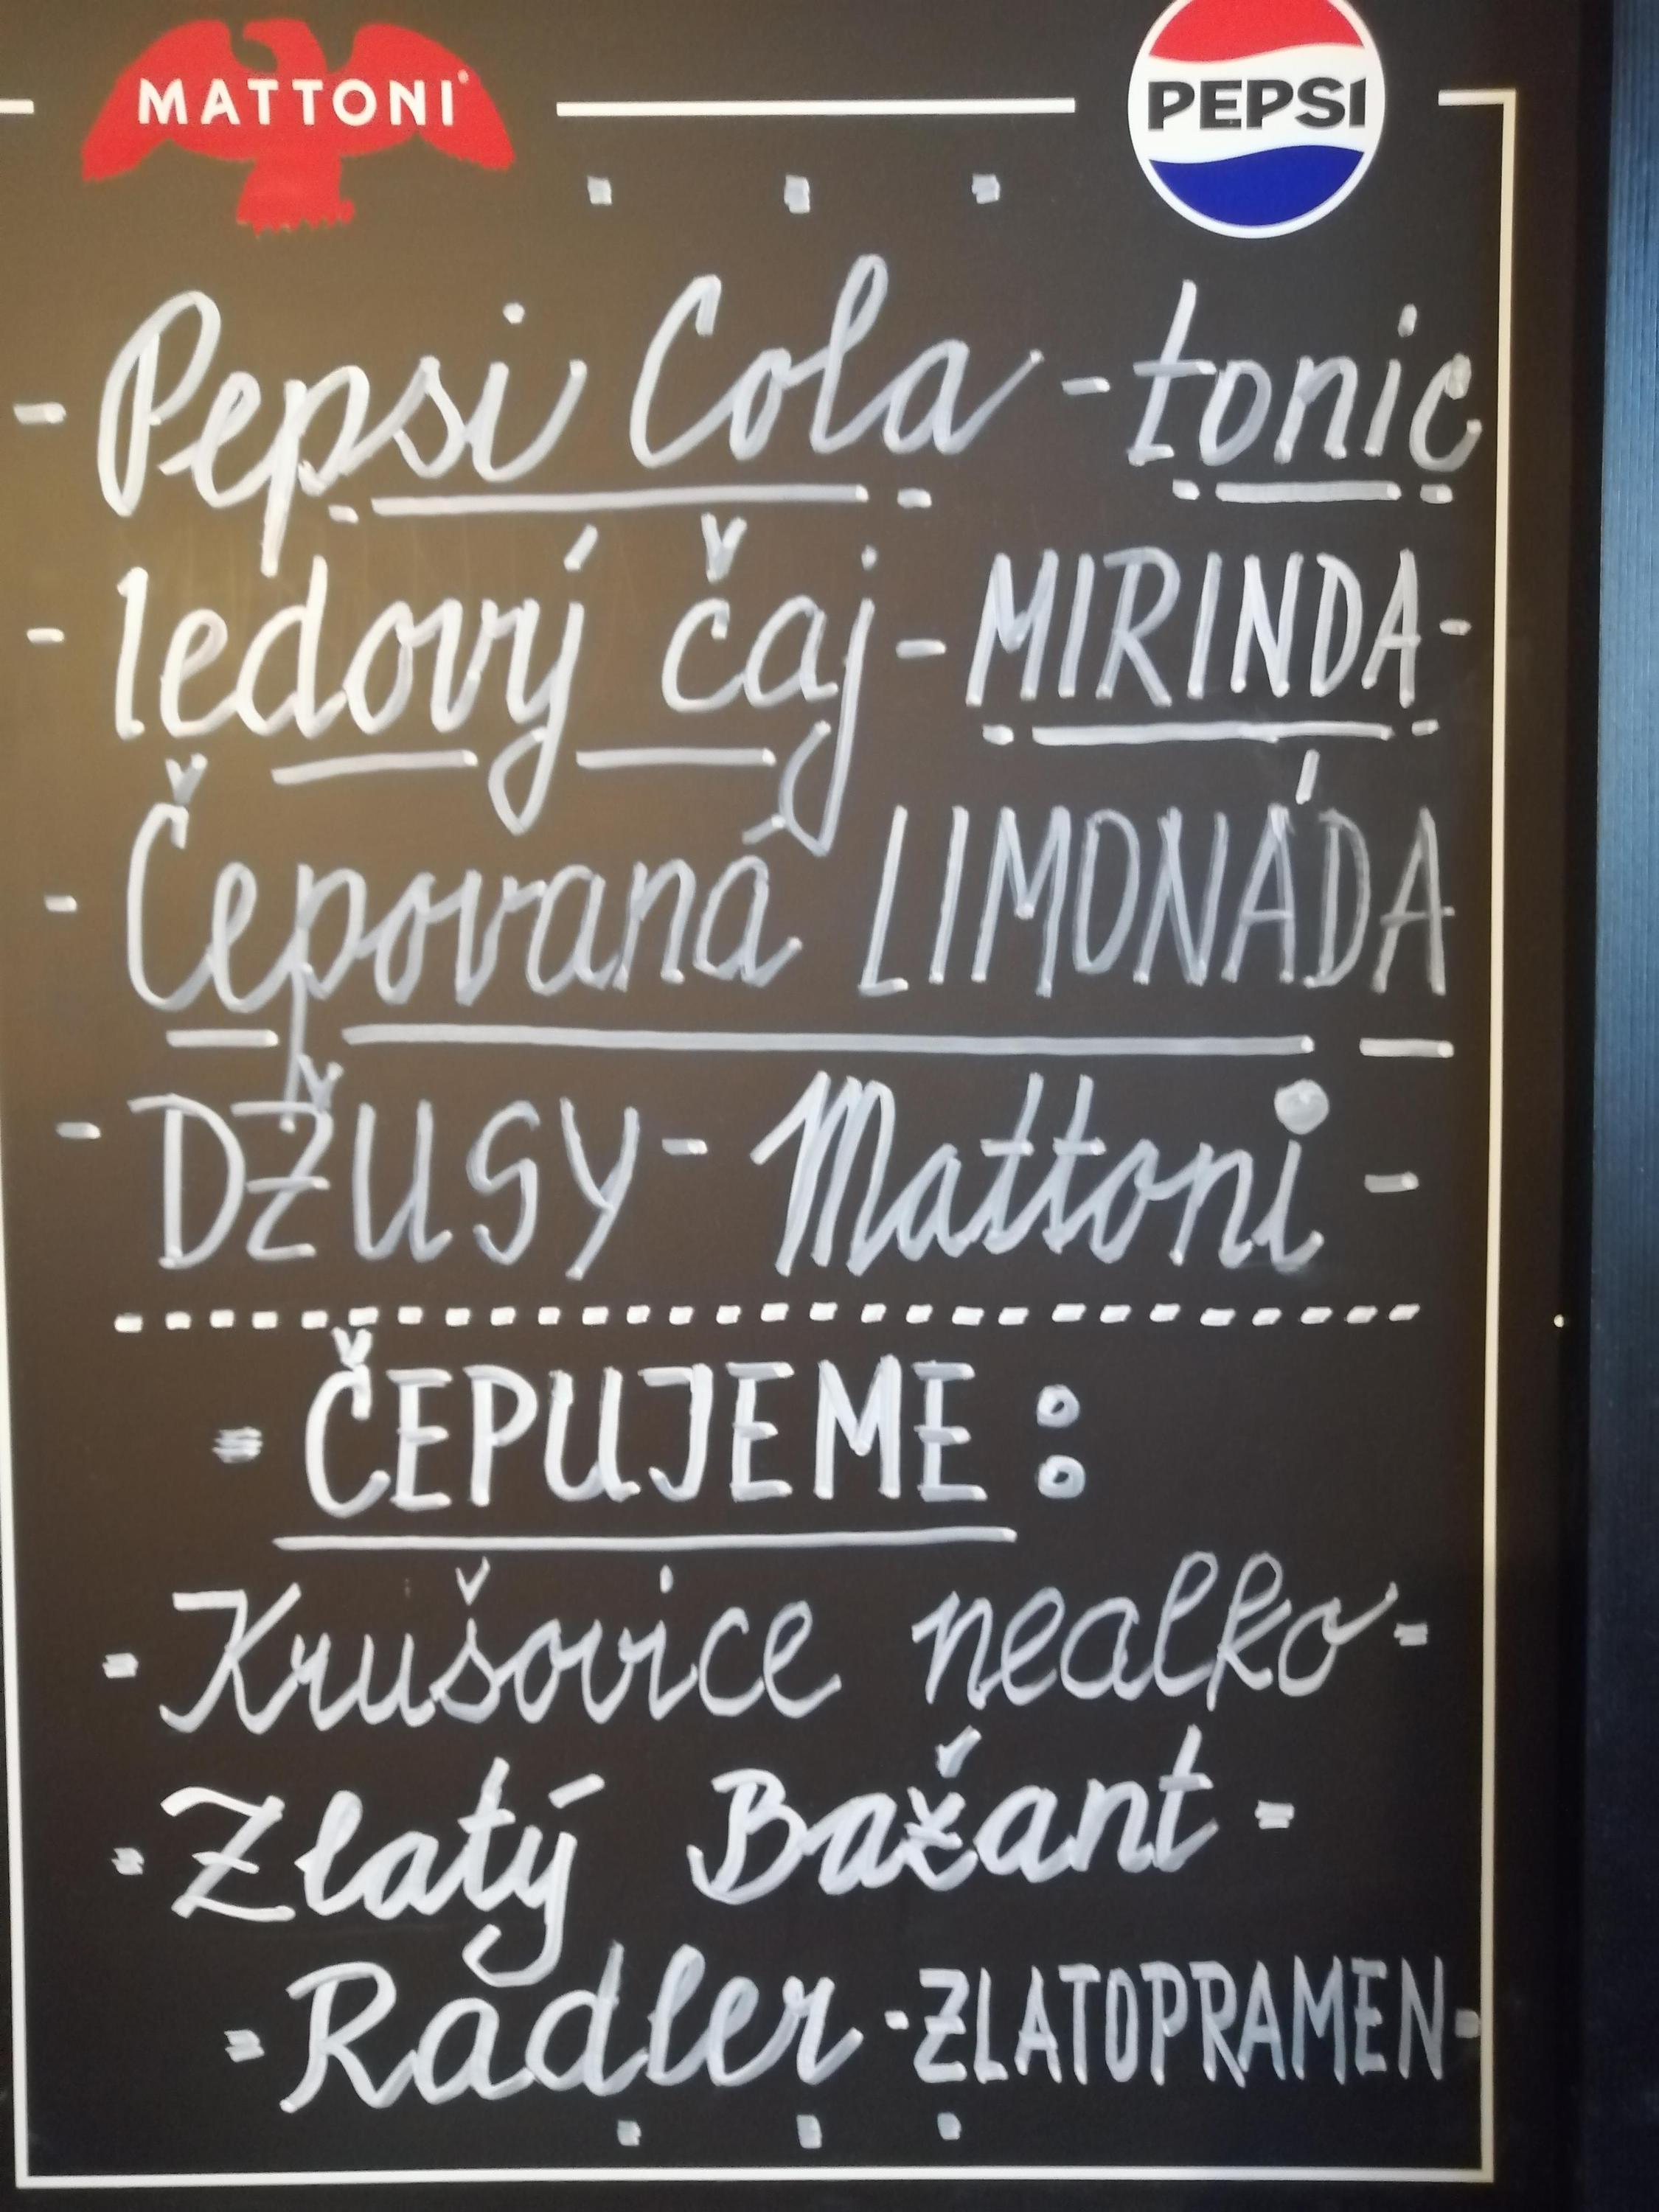 MATTONI
PEPSI
- Pepsi Cola - tonic
- ledový čaj - MIRINDA -
- Čepovaná LIMONÁDA
- DŽUSY - Mattoni -
- ČEPUJEME :
- Krušovice nealko -
- Zlatý Bažant -
- Radler - ZLATOPRAMEN -